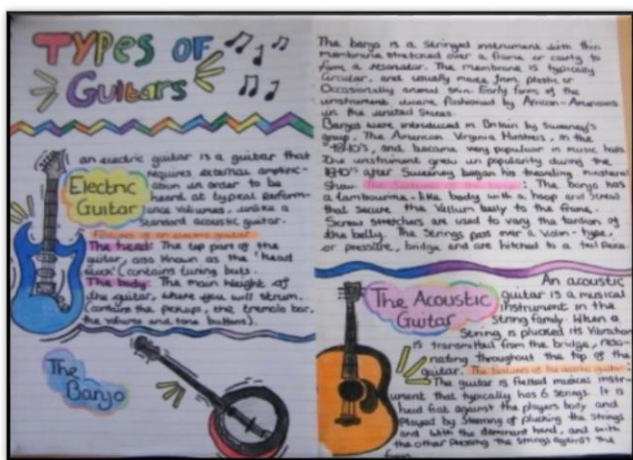 TYPES OF
Guitars
an electric guitar is a guitar that
requires external amplific-
ation in order to be
heard at typical perform-
ance volumes, unlike a
Standard acoustic guitar.
Electric
Guitar
Features of an electric guitar
The head: The top part of the
guitar, also known as the 'head
stock' (contains tuning
The body: The main of
the guitar, where you will strum.
(contains the pickups, the tremolo bar,
the volume and tone buttons).
The
Banjo
The banjo is a stringed instrument with thin
membrane stretched over a frame or cavity to
form a resonator. The membrane is typically
Circular, and usually made from plastic or
Occasionally animal skin. Early forms of the
instrument were fashioned by African-Americans
in the united States.
Banjos were introduced in Britain by Sweeney's
group, The American Virginia Minstrels, in the
1840's, and became very popular in music halls.
The instrument grew in popularity during the
1840's after Sweeney began his traveling minstrel
Show. The of the banjo: The banjo has
a tambourine-like body with a hoop and screws
that secure the Vellum belly to the frame.
Screw stretchers are used to vary the tension of
the belly. The Strings pass over a violin-type,
or pressure, bridge and are hitched to a tail piece.
The Acoustic
Guitar
An acoustic
guitar is a musical
instrument in the
String family. When a
String is plucked its Vibration
is transmitted from the bridge, reso-
nating throughout the top of the
guitar. The features of the acoustic guitar:
The guitar is fretted musical instr-
ument that typically has 6 strings. It is
held flat against the players body and
Played by or plucking the strings
and with the dominant hand, and with
the other pressing the strings against the